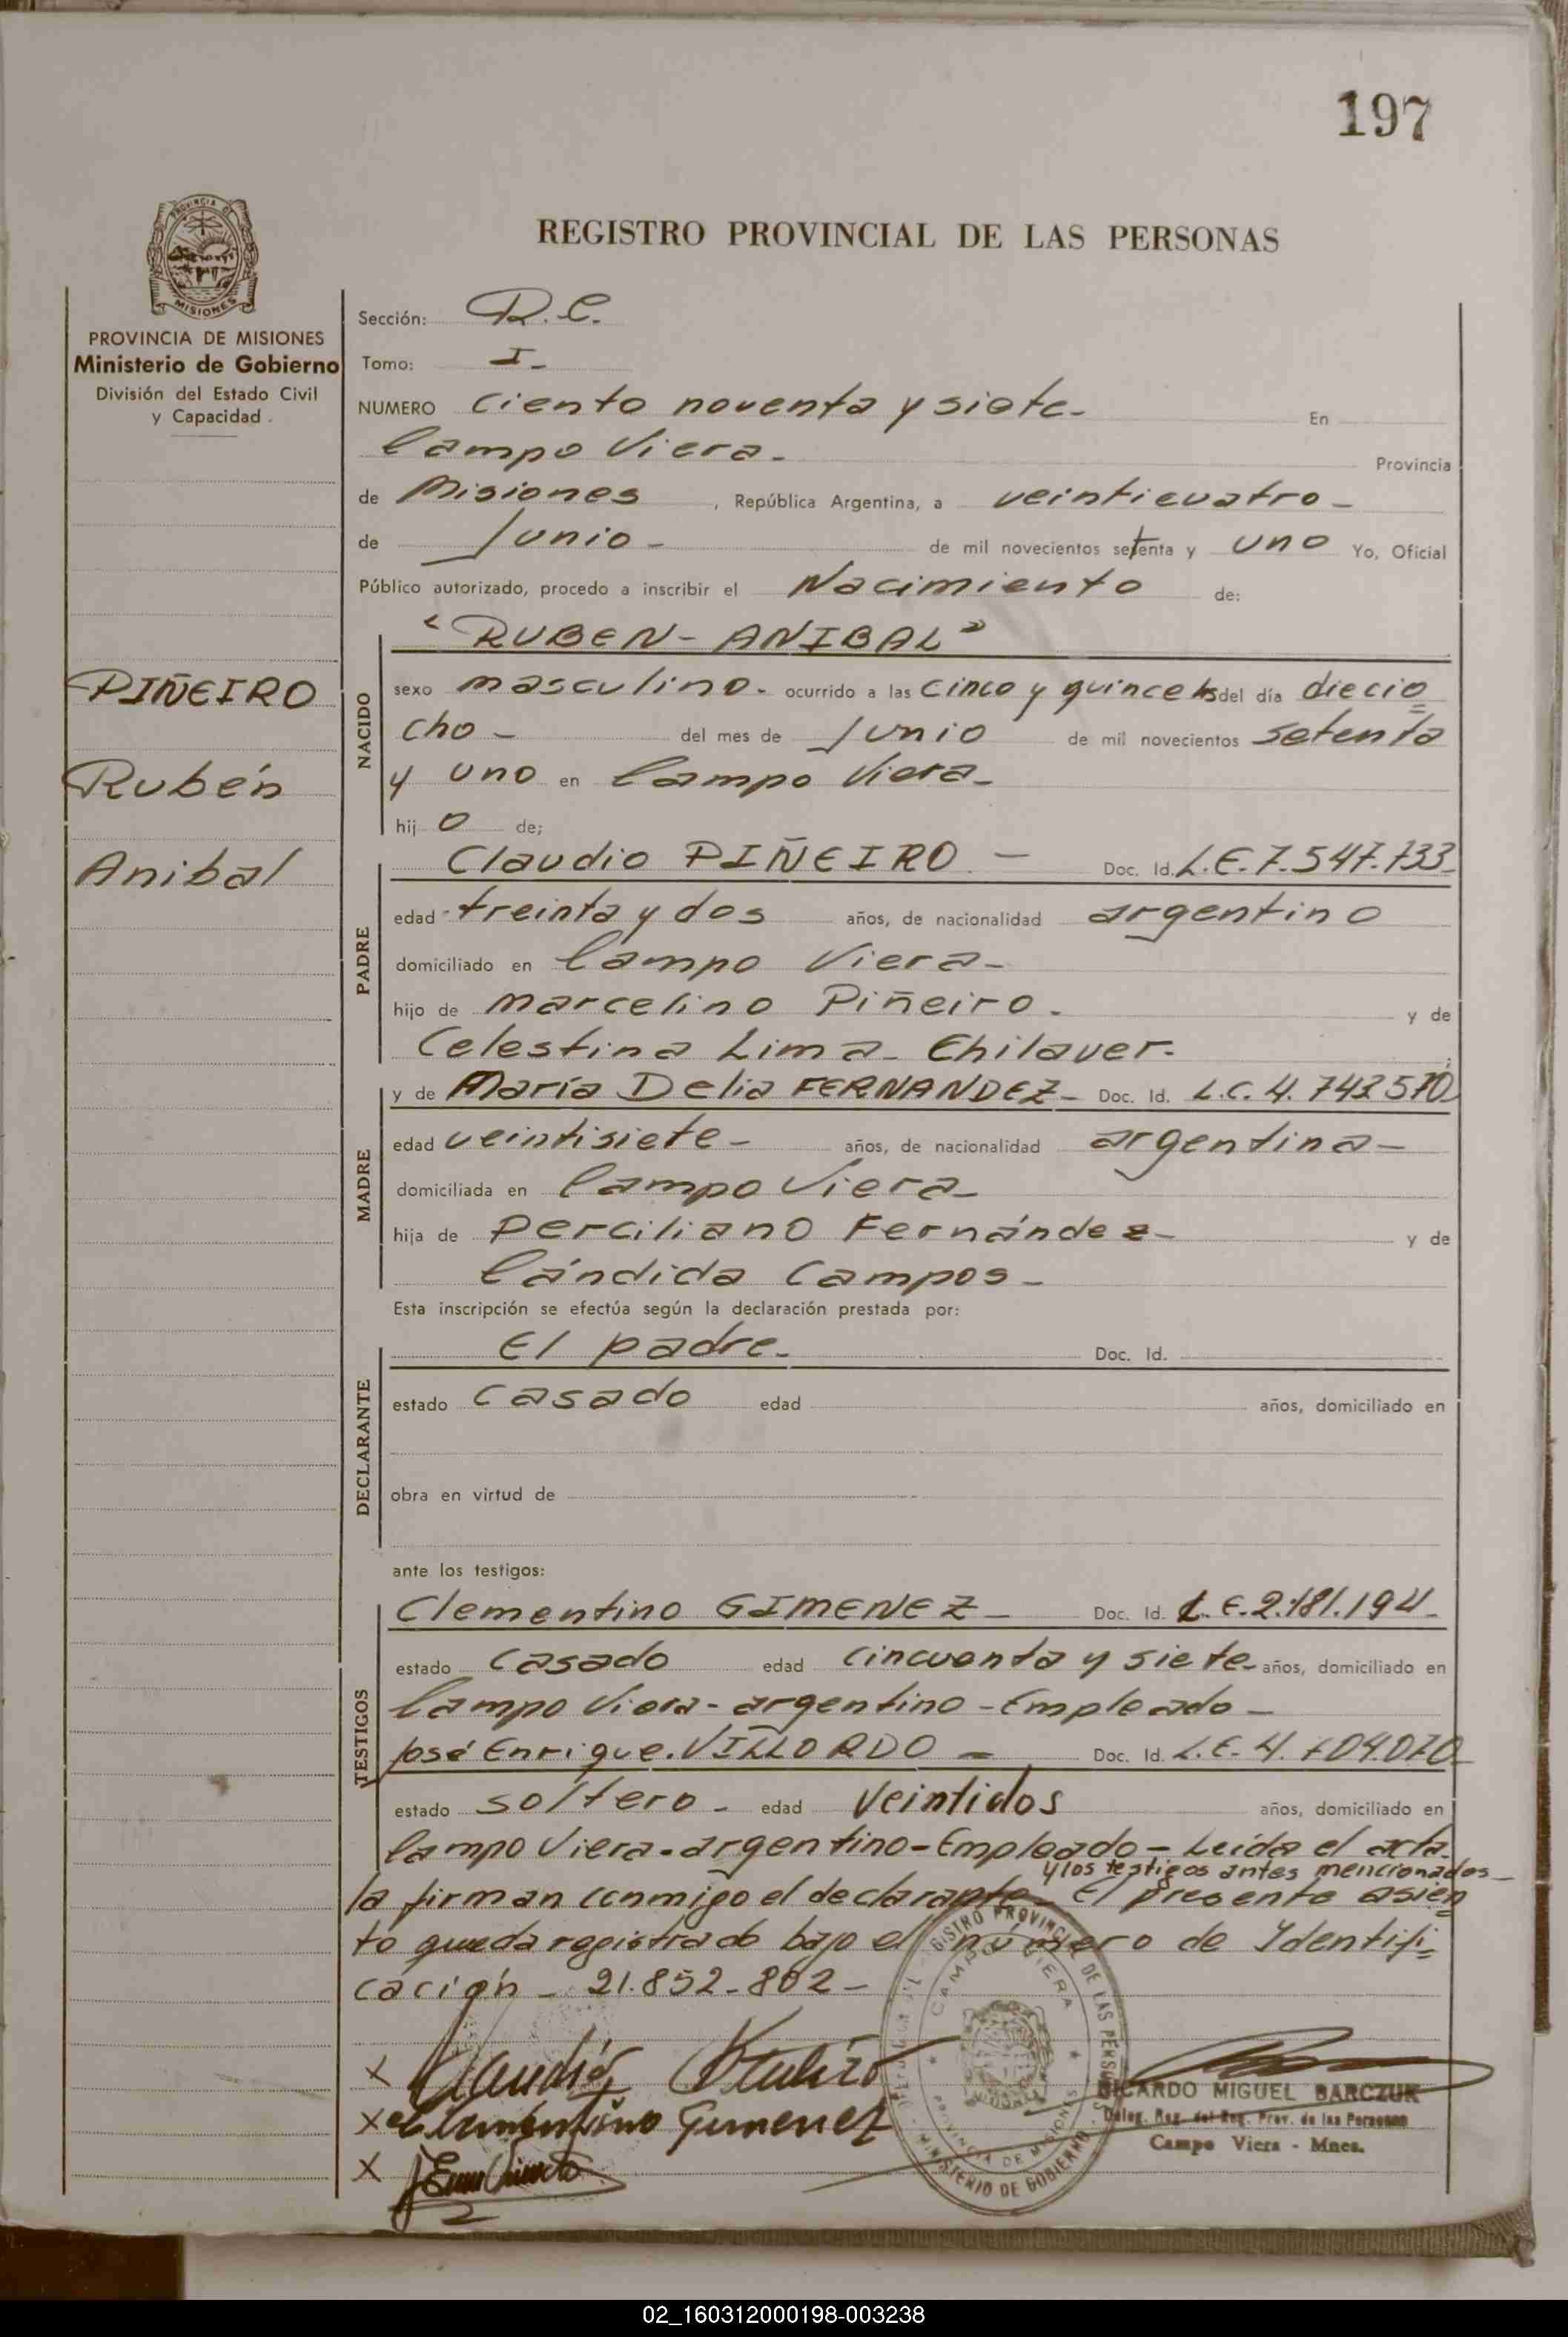 197
REGISTRO PROVINCIAL DE LAS PERSONAS
PROVINCIA DE MISIONES
Ministerio de Gobierno
División del Estado Civil
y Capacidad
PIÑEIRO
Rubén
Anibal
Sección: R.C.
Tomo: I-
NUMERO ciento noventa y siete- En
Campo Viera- Provincia
de Misiones, República Argentina, a veinticuatro-
de Junio- de mil novecientos setenta y uno Yo, Oficial
Público autorizado, procedo a inscribir el Nacimiento de:
NACIDO
"RUBEN-ANIBAL"
sexo masculino- ocurrido a las cinco y quince hs del día diecio=
cho- del mes de Junio de mil novecientos setenta
y uno en Campo Viera-
hij o de;
PADRE
Claudio PIÑEIRO- Doc. Id. L.E.7.547.733-
edad treinta y dos años, de nacionalidad argentino
domiciliado en Campo Viera-
hijo de Marcelino Piñeiro- y de
Celestina Lima- Chilaver-
MADRE
y de María Delia FERNANDEZ- Doc. Id. L.C. 4.743570
edad veintisiete- años, de nacionalidad argentina-
domiciliada en Campo Viera-
hija de Perciliano Fernández- y de
Cándida Campos-
Esta inscripción se efectúa según la declaración prestada por:
DECLARANTE
El padre- Doc. Id.
estado casado edad años, domiciliado en
obra en virtud de
ante los testigos:
TESTIGOS
Clementino GIMENEZ- Doc. Id. L.E.2.181.194-
estado casado edad cincuenta y siete- años, domiciliado en
Campo Viera-argentino-Empleado-
José Enrique VILLORDO= Doc. Id. L.E.
estado soltero- edad Veintidos años, domiciliado en
Campo Viera-argentino-Empleado-Leída el acta
y los testigos antes mencionados-
la firman conmigo el declarante- El presente asien=
to queda registrado bajo el número de Ydentifi=
cación- 21.852-802-
X Claudio
X Clementino Gimenez
X
REGISTRO PROVINCIAL DE LAS PERSONAS
CAMPO VIERA
PROVINCIA DE MISIONES
MINISTERIO DE GOBIERNO
RICARDO MIGUEL BARCZUK
Deleg. Reg. del Reg. Prov. de las Personas
Campo Viera - Mnes.
02_160312000198-003238